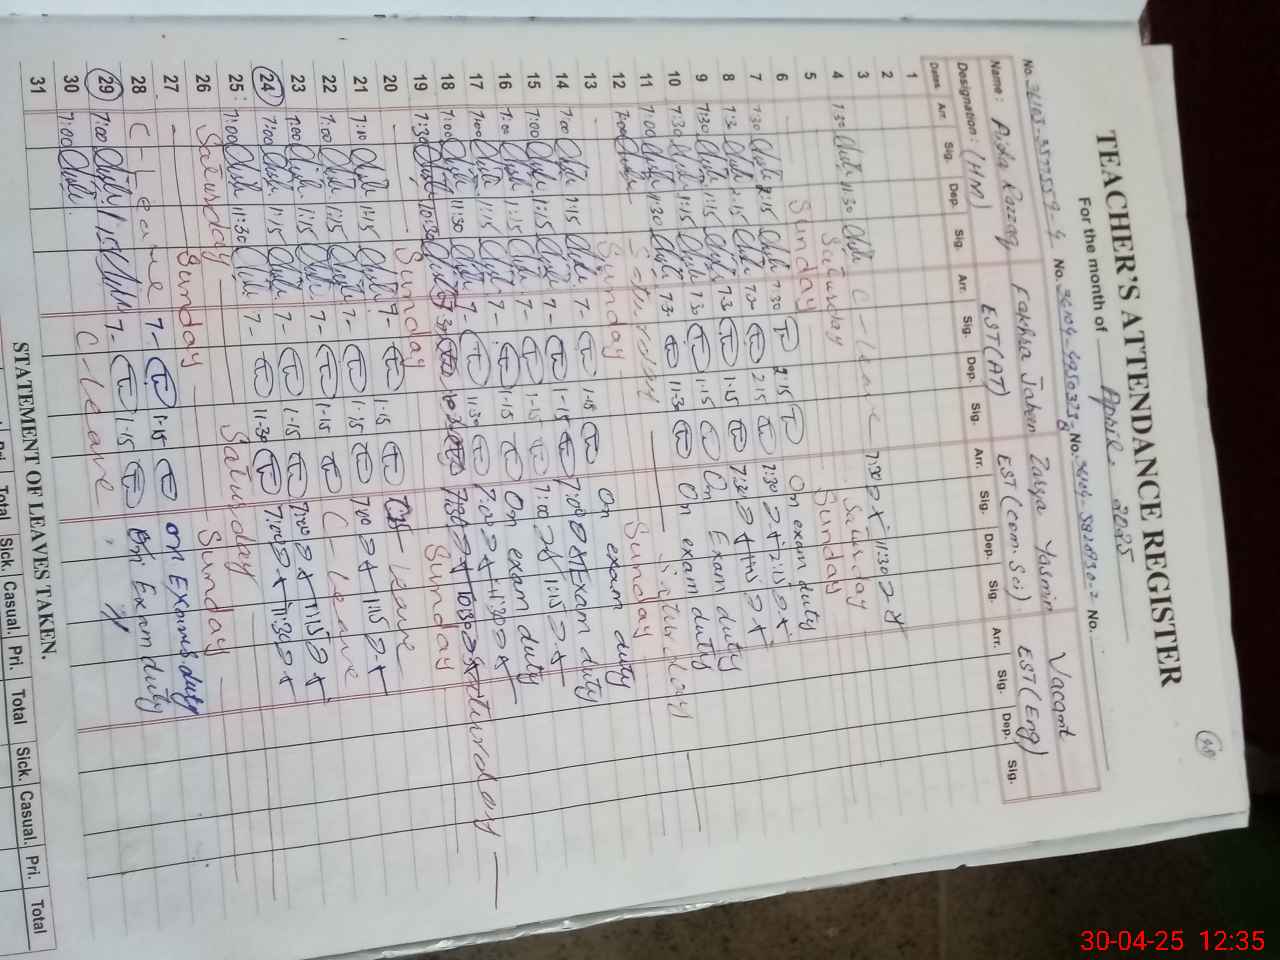 TEACHER'S ATTENDANCE REGISTER
For the month of April. 2025
No. No. No. No.
Name: Aisha Razzaq Fakhra Jabeen Zarqa Yasmin Vacant
Designation: (HM) EST (AT) EST (Com. Sci) EST (Eng)
Dates Arr. Sig. Dep. Sig. Arr. Sig. Dep. Sig. Arr. Sig. Dep. Sig. Arr. Sig. Dep. Sig.
1
2
3
4 7:30 11:30 C-Leave 7:30 11:30
5 Saturday Saturday
6 Sunday Sunday
7 7:30 2:15 7:30 2:15 On exam duty
8 7:30 2:15 7:30 2:15 7:30 2:15
9 7:30 1:15 7:30 1:15 7:30 1:15
10 7:30 1:15 7:30 1:15 On Exam duty
11 7:00 11:30 7:30 11:30 On exam duty
12 7:00 Saturday Saturday
13 Sunday Sunday
14 7:00 1:15 7- 1-15 On exam duty
15 7:00 1:15 7- 1-15 7:00 Exam duty
16 7:00 1:15 7- 1-15 7:00 1:15
17 7:00 1:15 7- 1-15 On exam duty
18 7:00 11:30 7- 11:30 7:00 11:30
19 7:30 10:30 7:30 10:30 7:30 10:30 Saturday
20 Sunday Sunday
21 7:10 1:15 7- 1-15 Leave
22 7:00 1:15 7- 1-15 7:00 1:15
23 7:00 1:15 7- 1-15 C-Leave
24 7:00 1:15 7- 1-15 7:00 1:15
25 7:00 11:30 7- 11-30 7:00 11:30
26 Saturday Saturday
27 Sunday Sunday
28 C-Leave 7- 1-15 on Exam duty
29 7:00 1:15 7- 1-15 On Exam duty
30 7:00 C-Leave
31
STATEMENT OF LEAVES TAKEN.
Pri. Total Sick. Casual. Pri. Total Sick. Casual. Pri. Total
30-04-25 12:35